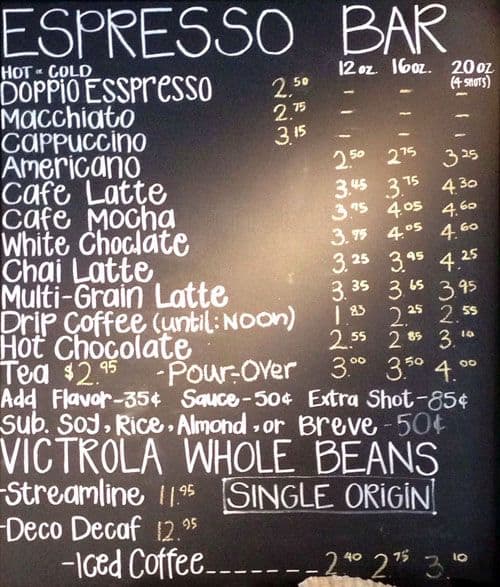 ESPRESSO BAR
HOT or COLD 12 oz. 16 oz. 20 oz (4 SHOTS)
DOPPiO ESSPresso 2.50 - - -
Macchiato 2.75 - - -
Cappuccino 3.15 - - -
Americano 2.50 2.75 3.25
Cafe Latte 3.45 3.75 4.30
Cafe Mocha 3.95 4.05 4.60
White Choclate 3.95 4.05 4.60
Chai Latte 3.25 3.95 4.25
Multi-Grain Latte 3.35 3.65 3.95
Drip Coffee (until: NOON) 1.83 2.25 2.55
Hot Chocolate 2.55 2.85 3.10
Tea $2.95 - Pour-Over 3.00 3.50 4.00
Add Flavor-35¢ Sauce-50¢ Extra Shot-85¢
Sub. Soy, Rice, Almond, or Breve -50¢
VICTROLA WHOLE BEANS
-Streamline 11.95 SINGLE ORIGIN
-Deco Decaf 12.95
-Iced Coffee------- 2.40 2.75 3.10